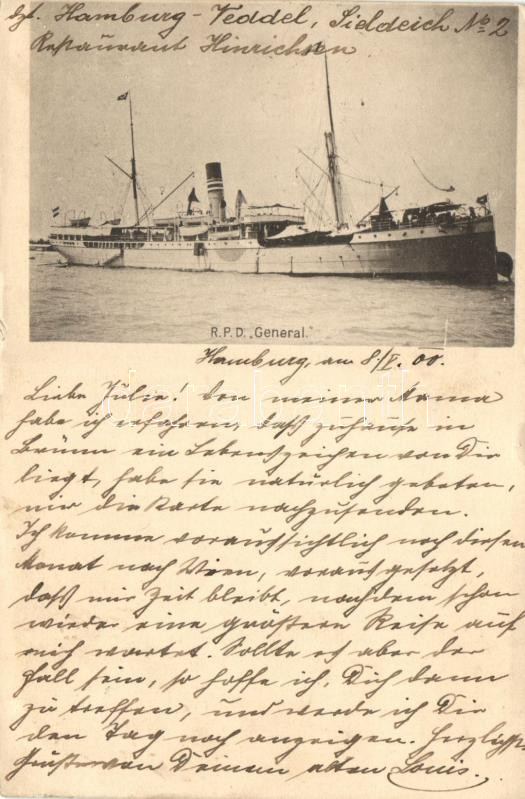 dzt. Hamburg-Veddel, Sieldeich No 2
Restaurant Hinrichsen
R.P.D. „General."
Hamburg, am 8./V. 00.
Liebe Julie! Von meiner Mama
habe ich erfahren, daß zuhause in
Brünn ein Lebenszeichen von Dir
liegt, habe sie natürlich gebeten,
mir die Karte nachzusenden.
Ich komme voraussichtlich noch diesen
Monat nach Wien, vorausgesetzt,
daß mir Zeit bleibt, nachdem schon
wieder eine größere Reise auf
mich wartet. Sollte es aber der
Fall sein, so hoffe ich, Dich dann
zu treffen, und werde ich Dir
den Tag noch anzeigen. Herzlichste
Grüße von Deinem alten Louis.
databanth